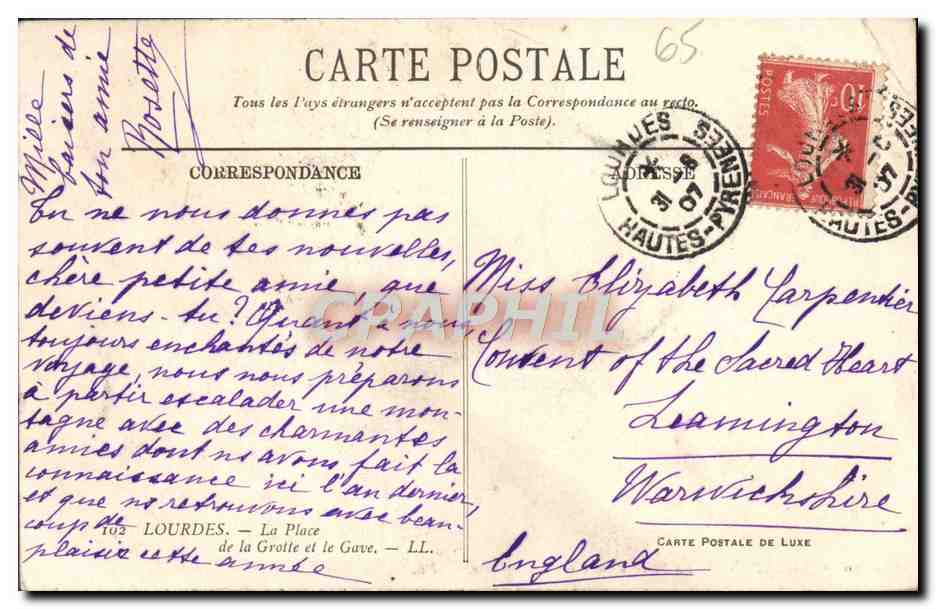 65
CARTE POSTALE
Tous les Pays étrangers n'acceptent pas la Correspondance au recto.
(Se renseigner à la Poste).
CORRESPONDANCE
ADRESSE
Mille
baisers de
ton amie
Rosette
Tu ne nous donnes pas
souvent de tes nouvelles,
chère petite amie, que
deviens-tu? Quant à nous
toujours enchantés de notre
voyage, nous nous préparons
à partir escalader une mon-
tagne avec des charmantes
amies dont ns avons fait la
connaissance ici l'an dernier,
et que ns retrouvons avec beau-
coup de
plaisir cette année
102 LOURDES. — La Place
de la Grotte et le Gave. — LL.
Miss Elizabeth Carpentier
Convent of the Sacred Heart
Leamington
Warwichshire
England
CARTE POSTALE DE LUXE
LOURDES
31 -8
07
HAUTES-PYRENEES
POSTES
10c
FRANÇAISE
31
07
HAUTES-PYRENEES
CRAPHIL